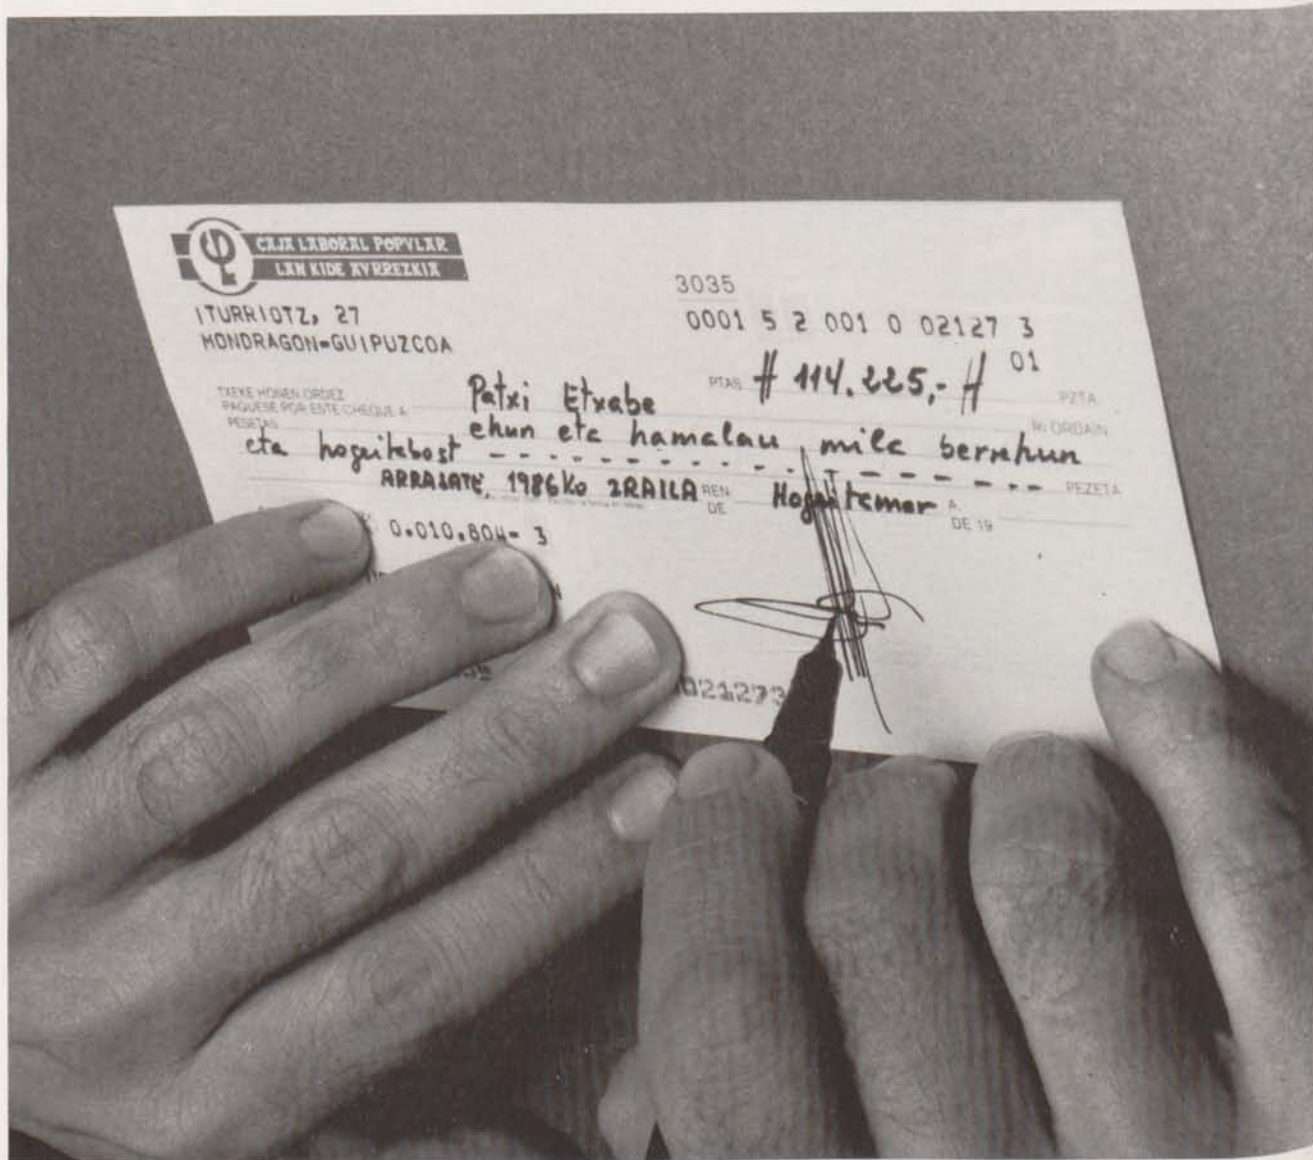 CAJA LABORAL POPVLAR
LAN KIDE AVRREZKIA
ITURRIOTZ, 27
MONDRAGON-GUIPUZCOA
3035
0001 5 2 001 0 02127 3
01
PTAS # 114.225,- # PZTA
TXEKE HONEN ORDEZ
PAGUESE POR ESTE CHEQUE A Patxi Etxabe
PESETAS ehun eta hamalau mila berrehun
eta hogeitabost - - - - - - - - - - - - - - - - PEZETA
ARRASATE, 1986ko IRAILA REN DE Hogeitamar A. DE 19
0.010.804- 3
021273